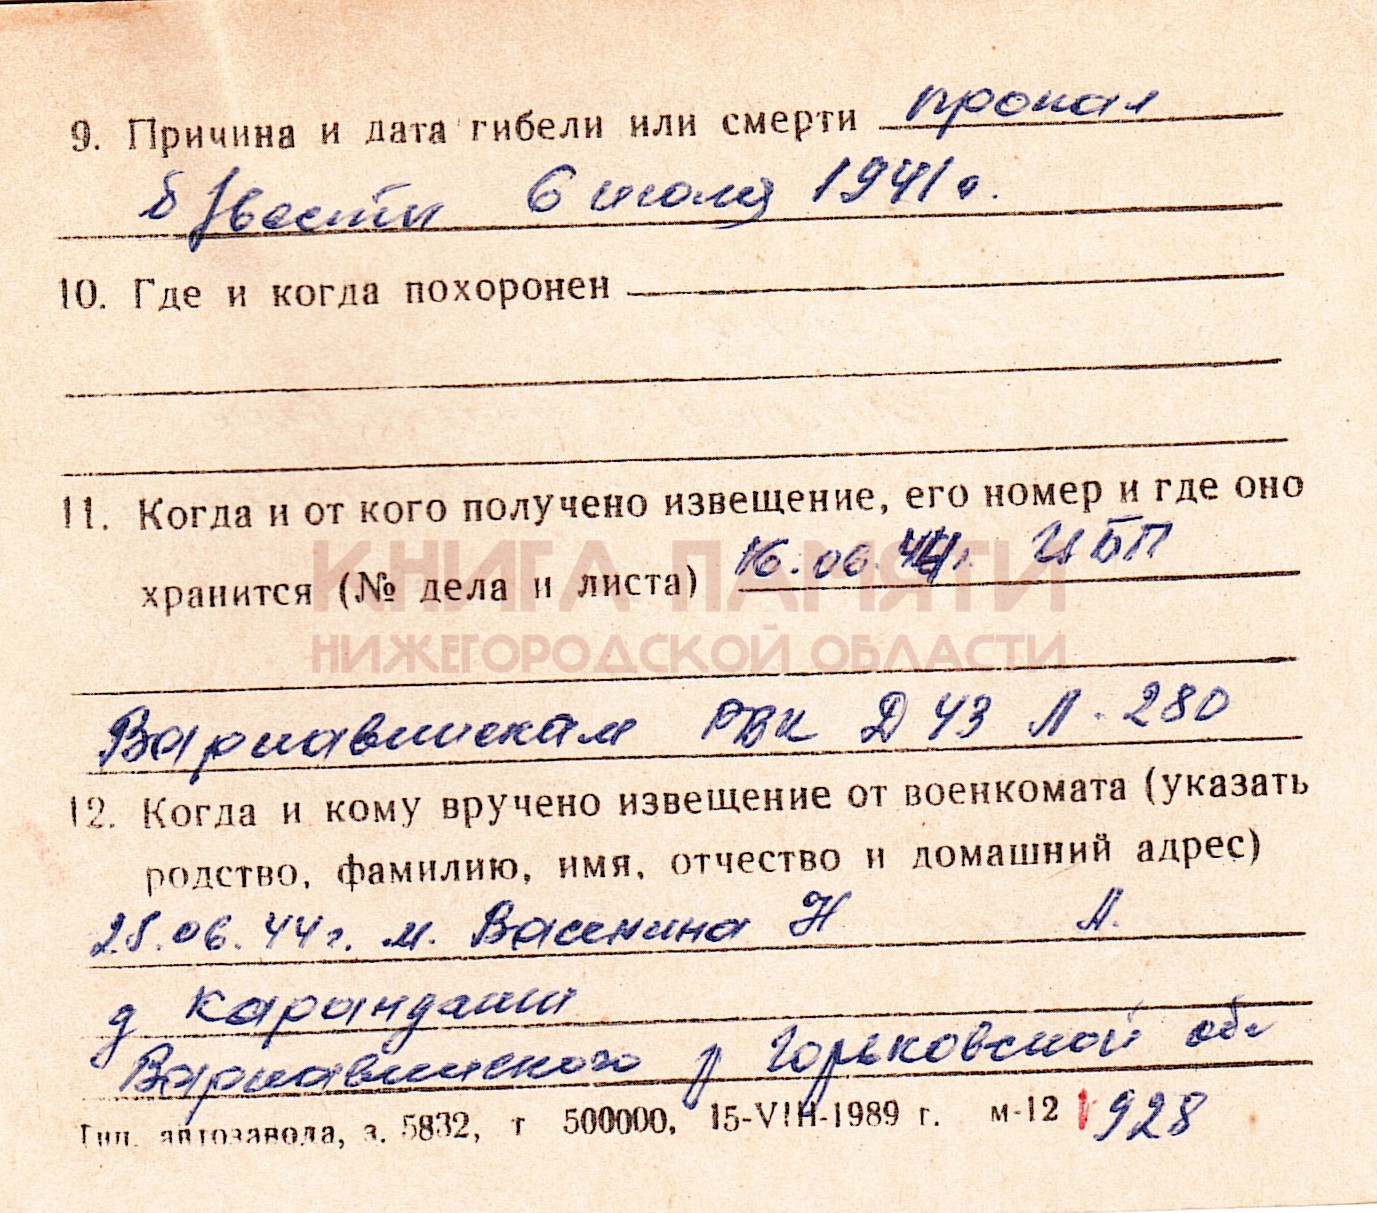 9. Причина и дата гибели или смерти пропал
б/вести 6 июля 1941 г.
10. Где и когда похоронен
11. Когда и от кого получено извещение, его номер и где оно
хранится (№ дела и листа) 16.06.44г. ЦБП
КНИГА ПАМЯТИ
НИЖЕГОРОДСКОЙ ОБЛАСТИ
Варнавинскам РВК Д 43 Л. 280
12. Когда и кому вручено извещение от военкомата (указать
родство, фамилию, имя, отчество и домашний адрес)
25.06.44г. м. Н Л.
д Карандаши
Варнавинского р Горьковской обл
Тип. автозавода, з. 5832, т 500000, 15-VIII-1989 г. м-12 928